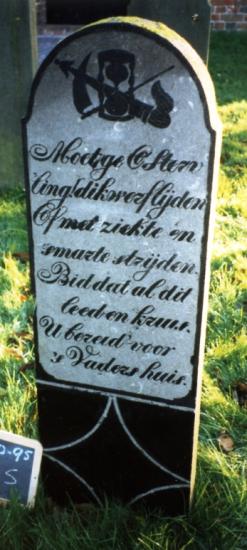 Moet ge O Stern
ling! dikwerf lijden
Of met ziekte en
smarte strijden.
Bid dat al dit
leed en kruis.
U bereid' voor
's Vaders huis.
-95
S